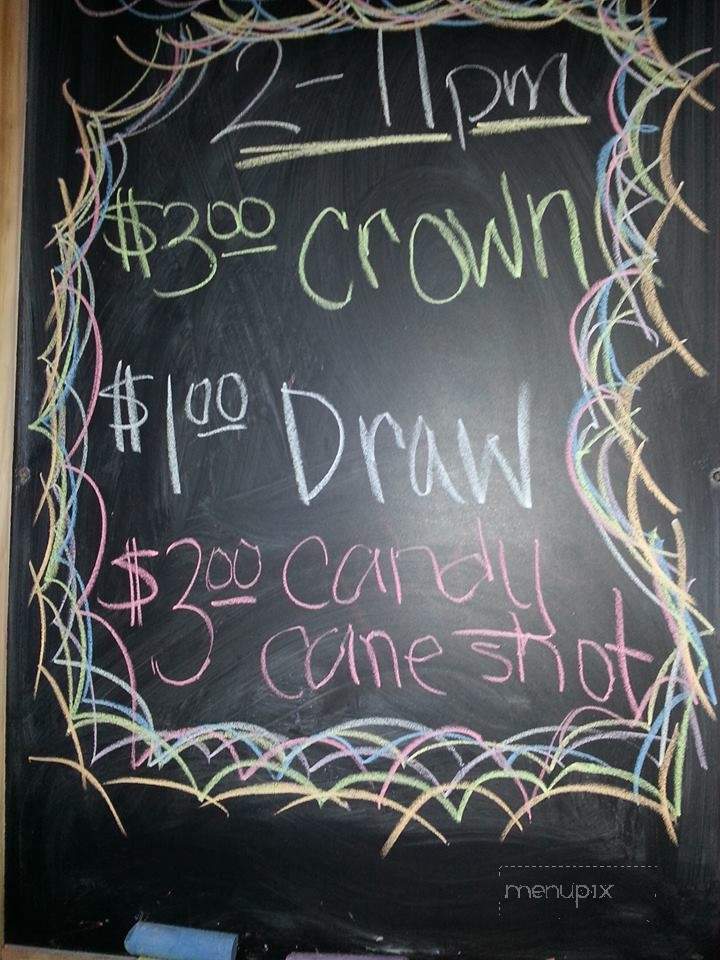 2-11pm
$3.00 Crown
$1.00 Draw
$3.00 Candy
cane shot
menupix